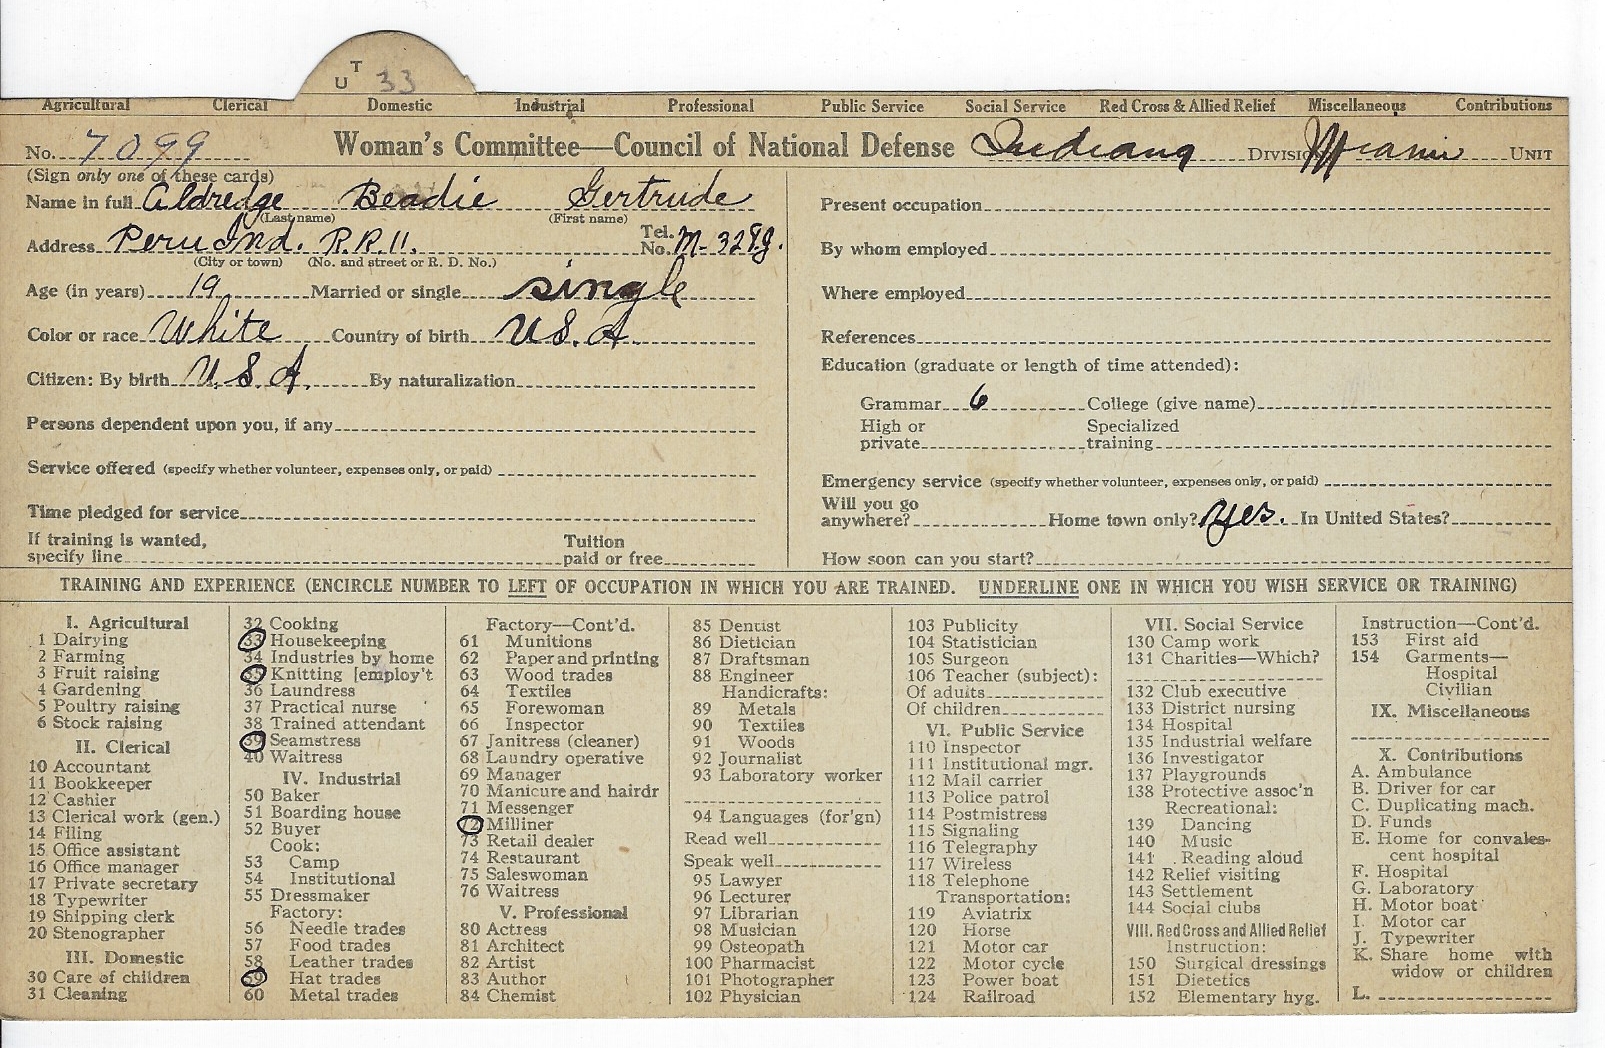 U T 33
Agricultural Clerical Domestic Industrial Professional Public Service Social Service Red Cross & Allied Relief Miscellaneous Contributions
No. 7099 Woman's Committee—Council of National Defense Indiana Division Miami Unit
(Sign only one of these cards)
Name in full Aldredge Beadie Gertrude
(Last name) (First name)
Address Peru Ind. R.R. 11. Tel. No. M-329J.
(City or town) (No. and street or R. D. No.)
Age (in years) 19 Married or single single
Color or race White Country of birth U.S.A.
Citizen: By birth U.S.A. By naturalization
Persons dependent upon you, if any
Service offered (specify whether volunteer, expenses only, or paid)
Time pledged for service
If training is wanted, specify line Tuition paid or free
Present occupation
By whom employed
Where employed
References
Education (graduate or length of time attended):
Grammar 6 College (give name)
High or private Specialized training
Emergency service (specify whether volunteer, expenses only, or paid)
Will you go anywhere? Home town only? yes. In United States?
How soon can you start?
TRAINING AND EXPERIENCE (ENCIRCLE NUMBER TO LEFT OF OCCUPATION IN WHICH YOU ARE TRAINED. UNDERLINE ONE IN WHICH YOU WISH SERVICE OR TRAINING)
I. Agricultural
1 Dairying
2 Farming
3 Fruit raising
4 Gardening
5 Poultry raising
6 Stock raising
II. Clerical
10 Accountant
11 Bookkeeper
12 Cashier
13 Clerical work (gen.)
14 Filing
15 Office assistant
16 Office manager
17 Private secretary
18 Typewriter
19 Shipping clerk
20 Stenographer
III. Domestic
30 Care of children
31 Cleaning
32 Cooking
33 Housekeeping
34 Industries by home
35 Knitting [employ't
36 Laundress
37 Practical nurse
38 Trained attendant
39 Seamstress
40 Waitress
IV. Industrial
50 Baker
51 Boarding house
52 Buyer
Cook:
53 Camp
54 Institutional
55 Dressmaker
Factory:
56 Needle trades
57 Food trades
58 Leather trades
59 Hat trades
60 Metal trades
Factory—Cont'd.
61 Munitions
62 Paper and printing
63 Wood trades
64 Textiles
65 Forewoman
66 Inspector
67 Janitress (cleaner)
68 Laundry operative
69 Manager
70 Manicure and hairdr
71 Messenger
72 Milliner
73 Retail dealer
74 Restaurant
75 Saleswoman
76 Waitress
V. Professional
80 Actress
81 Architect
82 Artist
83 Author
84 Chemist
85 Dentist
86 Dietician
87 Draftsman
88 Engineer
Handicrafts:
89 Metals
90 Textiles
91 Woods
92 Journalist
93 Laboratory worker
94 Languages (for'gn)
Read well
Speak well
95 Lawyer
96 Lecturer
97 Librarian
98 Musician
99 Osteopath
100 Pharmacist
101 Photographer
102 Physician
103 Publicity
104 Statistician
105 Surgeon
106 Teacher (subject):
Of adults
Of children
VI. Public Service
110 Inspector
111 Institutional mgr.
112 Mail carrier
113 Police patrol
114 Postmistress
115 Signaling
116 Telegraphy
117 Wireless
118 Telephone
Transportation:
119 Aviatrix
120 Horse
121 Motor car
122 Motor cycle
123 Power boat
124 Railroad
VII. Social Service
130 Camp work
131 Charities—Which?
132 Club executive
133 District nursing
134 Hospital
135 Industrial welfare
136 Investigator
137 Playgrounds
138 Protective assoc'n
Recreational:
139 Dancing
140 Music
141 Reading aloud
142 Relief visiting
143 Settlement
144 Social clubs
VIII. Red Cross and Allied Relief
Instruction:
150 Surgical dressings
151 Dietetics
152 Elementary hyg.
Instruction—Cont'd.
153 First aid
154 Garments—
Hospital
Civilian
IX. Miscellaneous
X. Contributions
A. Ambulance
B. Driver for car
C. Duplicating mach.
D. Funds
E. Home for convales-
cent hospital
F. Hospital
G. Laboratory
H. Motor boat
I. Motor car
J. Typewriter
K. Share home with
widow or children
L.